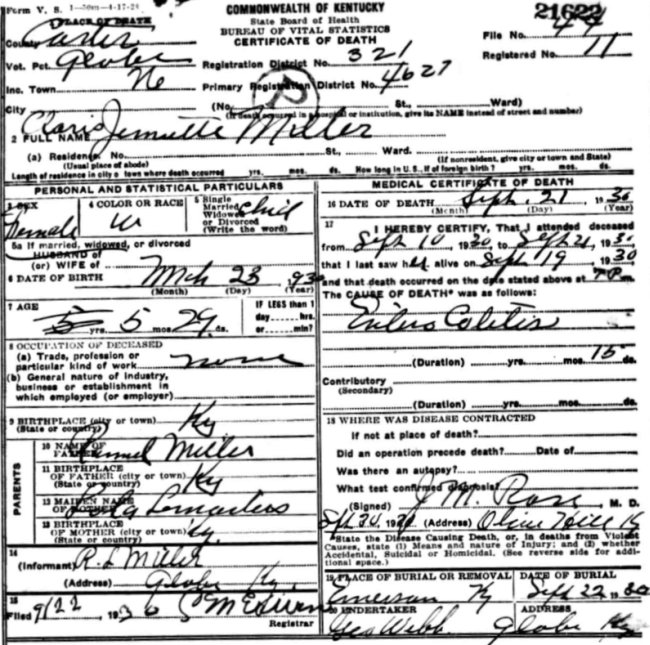 Form V. S. 1—50m—4-17-28
COMMONWEALTH OF KENTUCKY
State Board of Health
BUREAU OF VITAL STATISTICS
CERTIFICATE OF DEATH
21622
PLACE OF DEATH
County Carter
File No.
Vot. Pct. Globe
Registration District No. 321
Registered No. 11
Inc. Town No
Primary Registration District No. 4627
City
(No. St., Ward)
(If death occurred in a hospital or institution, give its NAME instead of street and number)
2 FULL NAME Claris Jennette Miller
(a) Residence. No. St., Ward.
(Usual place of abode) (If nonresident, give city or town and State)
Length of residence in city or town where death occurred yrs. mos. ds. How long in U. S., if of foreign birth? yrs. mos. ds.
PERSONAL AND STATISTICAL PARTICULARS
3 SEX Female
4 COLOR OR RACE W
5 Single Married Widowed or Divorced (Write the word) Child
5a If married, widowed, or divorced
HUSBAND of
(or) WIFE of
6 DATE OF BIRTH Mch 23 1930
(Month) (Day) (Year)
7 AGE
yrs. 5 mos. 29 ds.
IF LESS than 1 day hrs. or min?
8 OCCUPATION OF DECEASED
(a) Trade, profession or particular kind of work none
(b) General nature of industry, business or establishment in which employed (or employer)
9 BIRTHPLACE (city or town) Ky
(State or country)
PARENTS
10 NAME OF FATHER Miller
11 BIRTHPLACE OF FATHER (city or town) Ky
(State or country)
12 MAIDEN NAME OF MOTHER
13 BIRTHPLACE OF MOTHER (city or town) Ky.
14
(Informant) R. L. Miller
(Address) Globe Ky.
15
Filed 9/22 1930
Registrar
MEDICAL CERTIFICATE OF DEATH
16 DATE OF DEATH Sept. 21 1930
(Month) (Day) (Year)
17
I HEREBY CERTIFY, That I attended deceased
from Sept 10 1930 to Sept 21, 1930
that I last saw her alive on Sept 19 1930
and that death occurred on the date stated above at m.
The CAUSE OF DEATH* was as follows:
Entero Colitis
(Duration) yrs. mos. 15 ds.
Contributory
(Secondary)
(Duration) yrs. mos. ds.
18 WHERE WAS DISEASE CONTRACTED
If not at place of death?
Did an operation precede death? Date of
Was there an autopsy?
What test confirmed diagnosis?
(Signed) J. M. Rose M. D.
1930 (Address) Olive Hill Ky
*State the Disease Causing Death, or, in deaths from Violent
Causes, state (1) Means and nature of Injury; and (2) whether
Accidental, Suicidal or Homicidal. (See reverse side for addi-
tional space.)
19 PLACE OF BURIAL OR REMOVAL Emerson Ky
DATE OF BURIAL Sept 22 1930
20 UNDERTAKER Geo Webb
ADDRESS Globe Ky